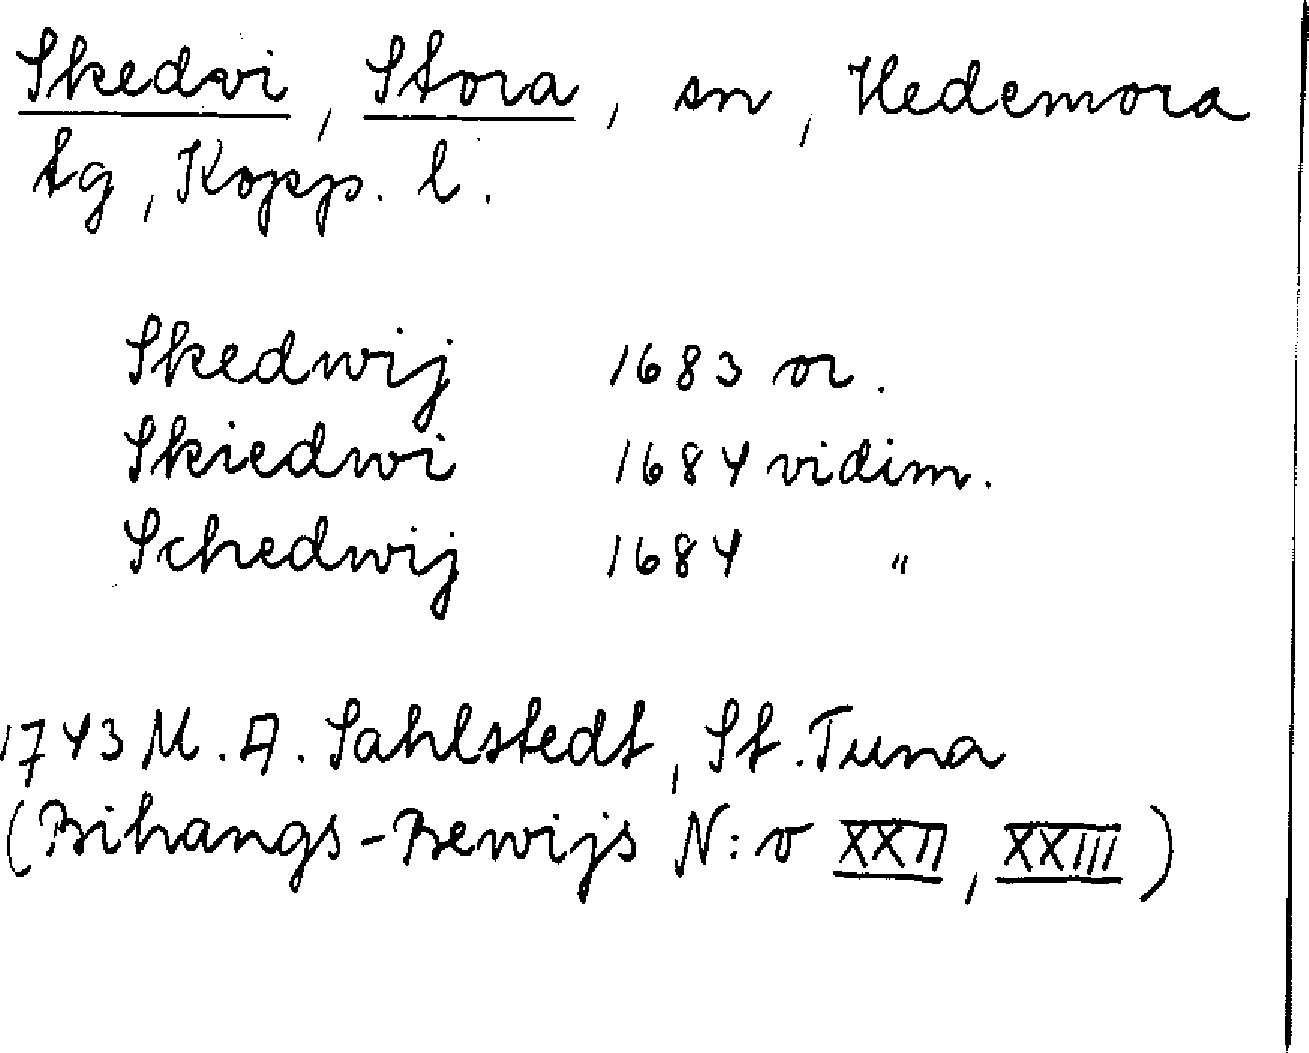 Skedvi, Stora, sn, Hedemora
tg, Kopp. l.
Skedwij 1683 or.
Skiedwi 1684 vidim.
Schedwij 1684 "
1743 M. A. Sahlstedt, St. Tuna
(Bihangs-Bewijs N:o XXII, XXIII)